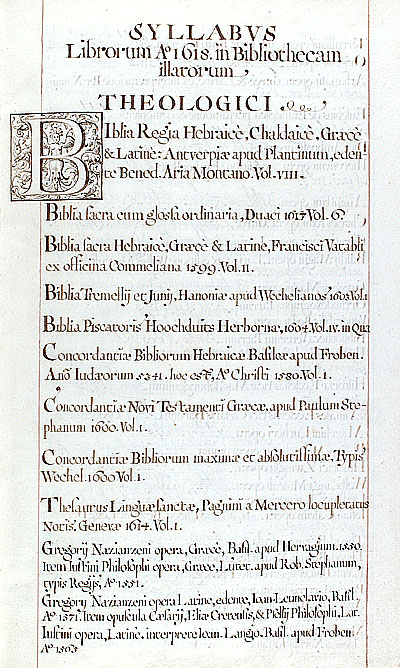 SYLLABVS
Librorum Aº 1618. in Bibliothecam
illatorum
THEOLOGICI.
BIblia Regia Hebraicè, Chaldaicè, Græcè
& Latinè: Antverpiæ apud Plantinum, eden-
te Bened. Aria Montano. Vol. viii.
Biblia sacra cum glossa ordinaria, Duaci 1617 Vol. 6
Biblia sacra Hebraicè, Græcè & Latinè, Francisci Vatabli
ex officina Commeliana 1599. Vol. II.
Biblia Tremellij et Junij, Hanoniæ apud Wechelianos 1603 Vol. 1
Biblia Piscatoris Hoochduits Herbornæ, 1604 Vol. IV. in Qua
Concordantiæ Bibliorum Hebraicæ Basileæ apud Froben.
Año Iudæorum 5341. hoc est, Aº Christi 1580 Vol. 1.
Concordantiæ Novi Testamenti Græcæ, apud Paulum Ste-
phanum 1600. Vol. 1.
Concordantiæ Bibliorum maximæ et absolutissimæ, Typis
Wechel. 1600 Vol. 1.
Thesaurus Linguæ sanctæ, Pagnini a Mercero locupletatus
Notis. Genevæ 1614. Vol. 1.
Gregorij Nazianzeni opera, Græcè, Basil. apud Hervagium. 1550.
Item Iustini Philosophi opera, Græcè, Lutet. apud Rob. Stephanum,
typis Regijs, Aº 1551.
Gregorij Nazianzeni opera Latine, edente, Ioan. Leunclavio, Basil.
Aº 1571. Item opuscula Cæsarij, Eliæ Cretensis, & Pselli Philosophi, Lat.
Iustini opera, Latinè. interprete Ioan. Langio. Basil. apud Froben.
Aº 1565